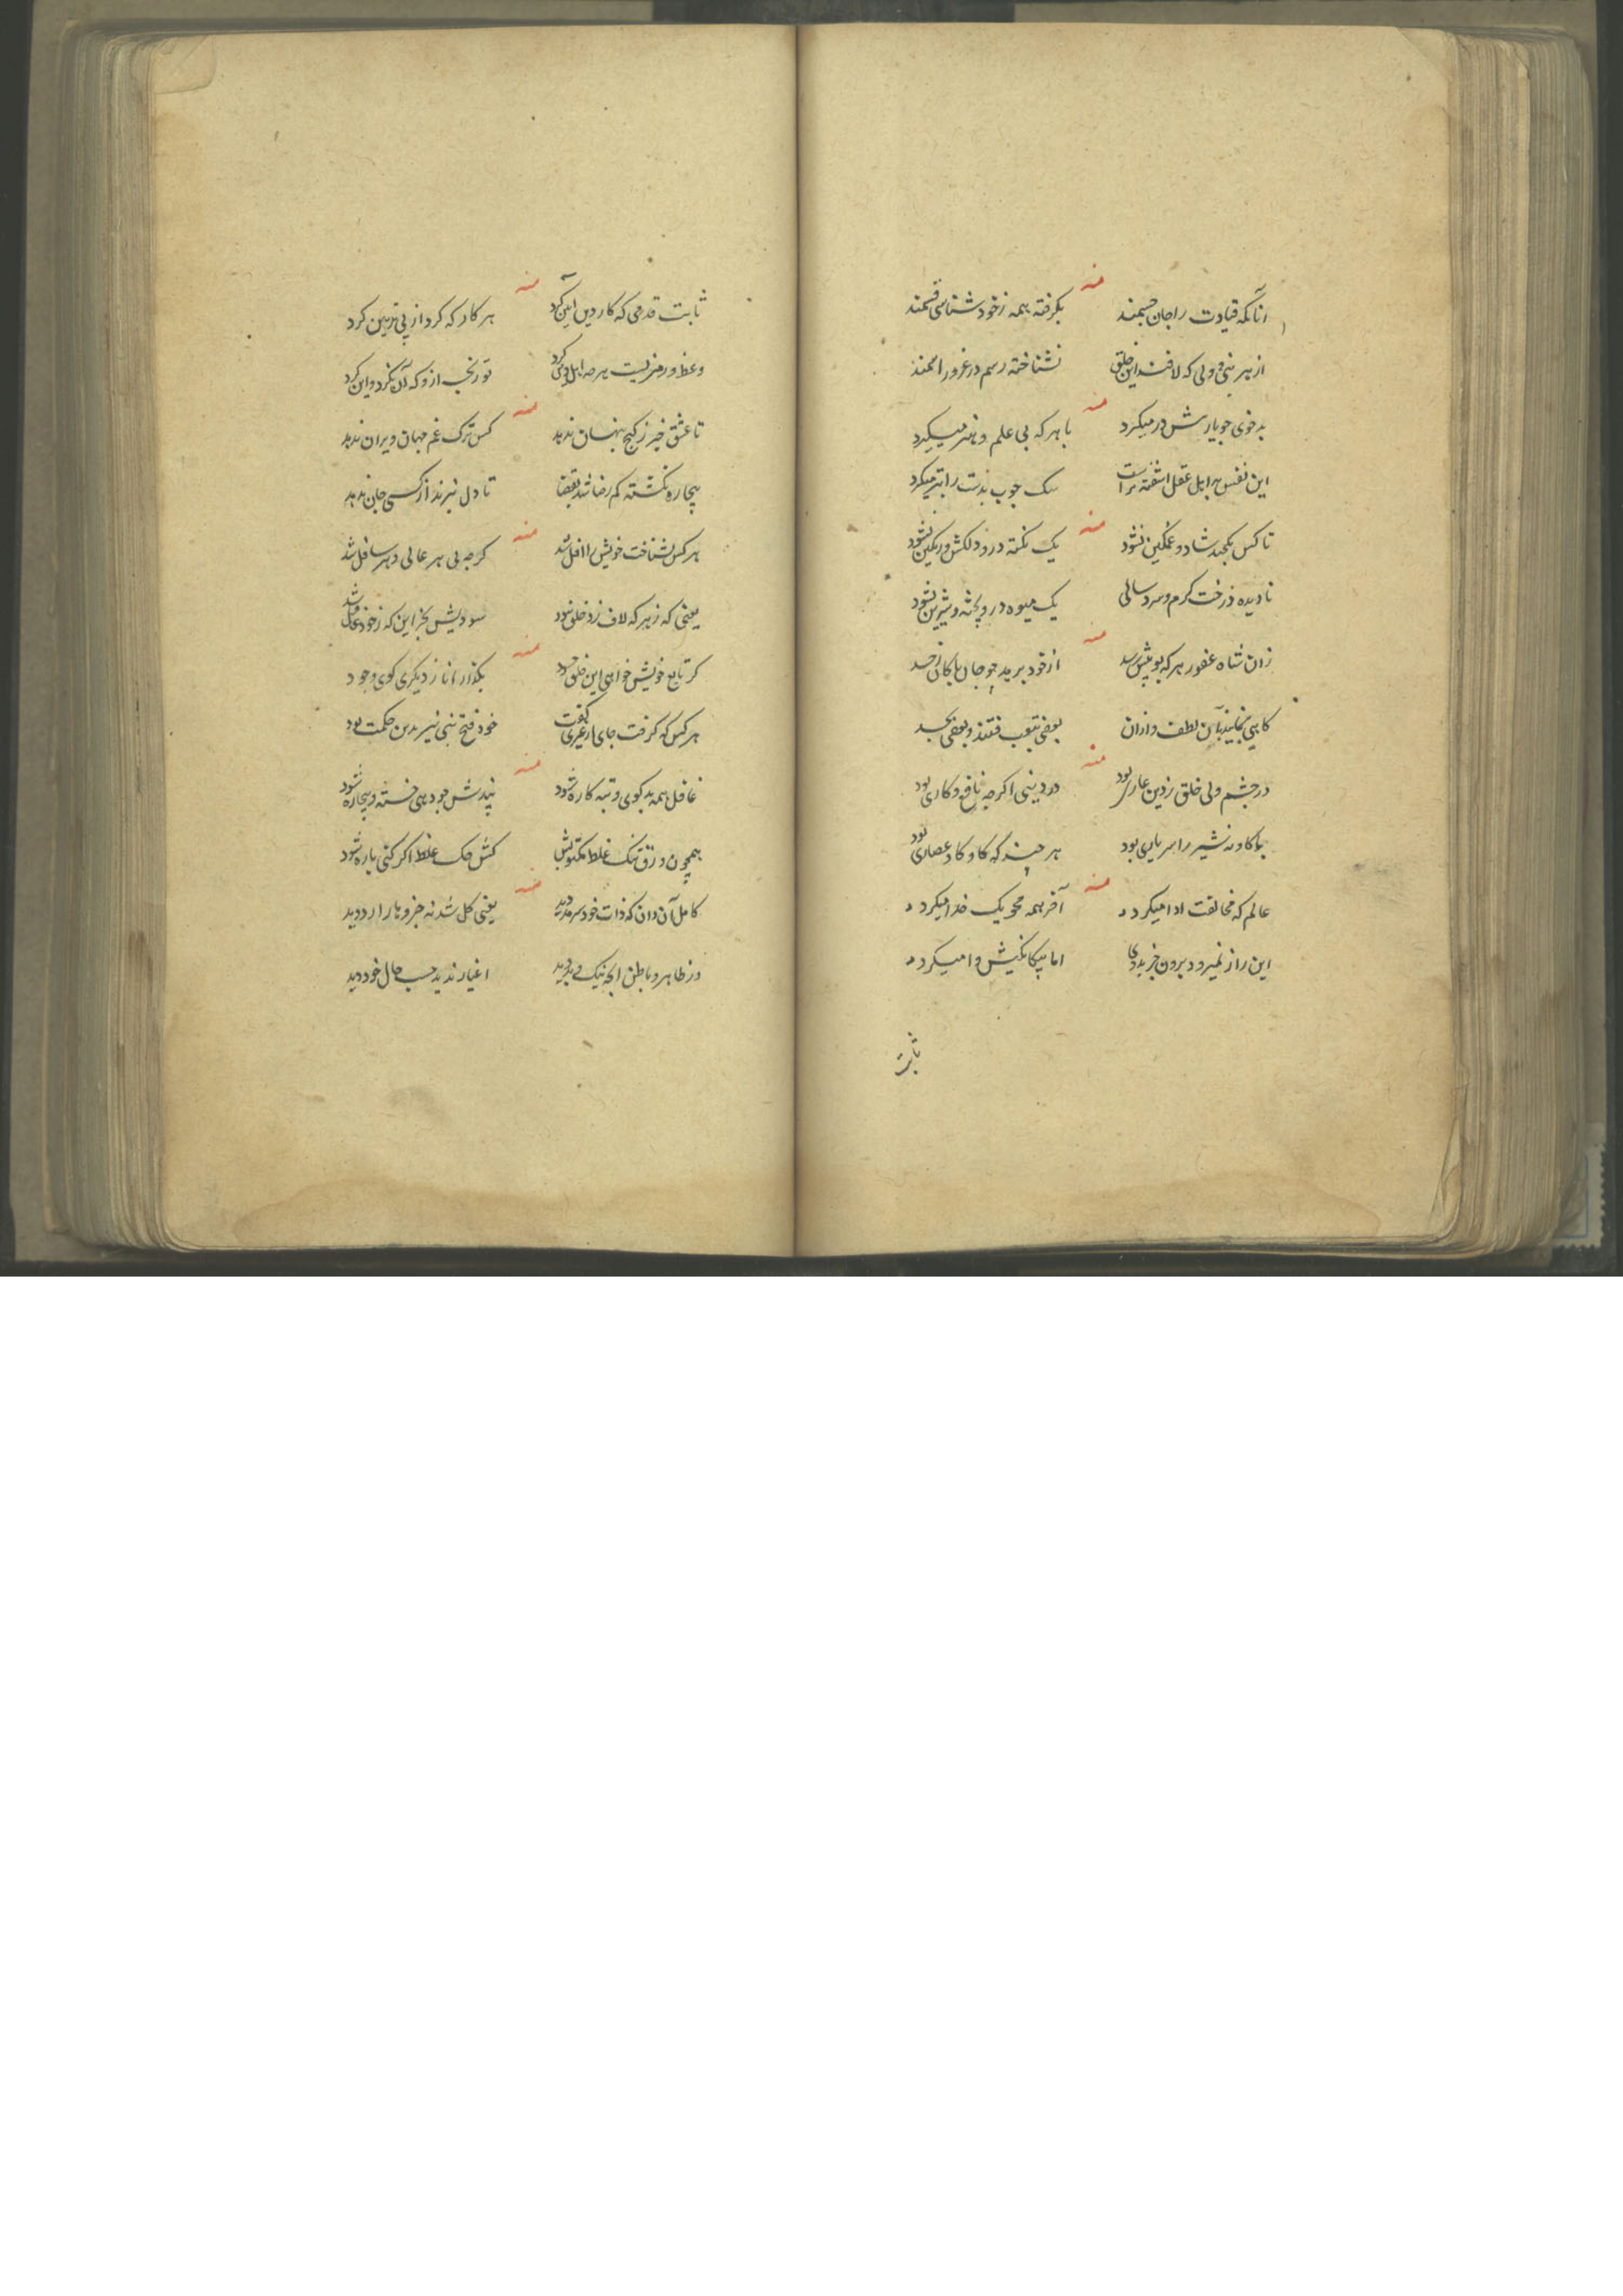 منه
آنانکه قیادت را جان جسمند بگرفته همه ز خود شناسی قسمند
از هر نبی و ولی که لافند این خلق نشناخته رسم در غرور اسمند
منه
بد خوی جو یارش در میکرد با هر که بی علم و هنر میکرد
این نفس بر اهل عقل اشفته تر است سک جوب بدست را بتر میکرد
منه
تا کس بکجند شاد و غمکین نشود یک نکته درو دلکش و رنکین نشود
نادیده درخت کرم و سرد سالی یک میوه درو بخته و شیرین نشود
منه
زان شاه غفور هر که بویش رسد از خود برمد جو جان باکان ز جسد
کاهی نماید بآن لطف و ازان بعضی بتعب فتند و بعضی بحسد
منه
در جشم ولی خلق ز دین عاری بود در دینی اکرجه نافع و کاری بود
با کاو نه شیر را سر یاری بود هر جند که کاو کاو عصاری بود
منه
عالم که مخالفت ادا میکرد آخر همه محو یک خدا میکرد
این راز نمیرود برون جز بددی اما بیکانکیش وا میکرد
ثابت
منه
ثابت قدمی که کار دین آیین کرد هر کار که کرد از پی تزیین کرد
وعظ و رمز نیست هرجه اهل دل کرد تو رنجه ازو که آن نکرد و این کرد
منه
تا عشق خبر ز کنج پنهان ندهد کس ترک غم جهان ویران ندهد
بیچاره نکشته کم رضا شد بقضا تا دل نبرند از کسی جان ندهد
منه
هر کس نشناخت خویش را افل شد کرجه بی هر عالی و هر سافل شد
یعنی که ز هر که لاف زد خلق نبود سودیش بجز این که ز خود غافل شد
منه
کر تابع خویش خواهی این خلق حسود بکذار انا ز دیکری کوی وجود
هر کس که کرفت جای از غیری کفت خود فتح نبی نیز بدین حکمت بود
منه
غافل همه بد کوی و تبه کاره شود پندش جو دهی خسته و بیچاره شود
همچون ورق تنک غلط مکتوبش کش حک غلط اکر کنی باره شود
منه
کامل آن دان که ذات خود سرمد دید یعنی کل شد نه جزو بار ارد دید
وز ظاهر و باطن انجه نیک و بد دید اغیار ندید حسب حال خود دید